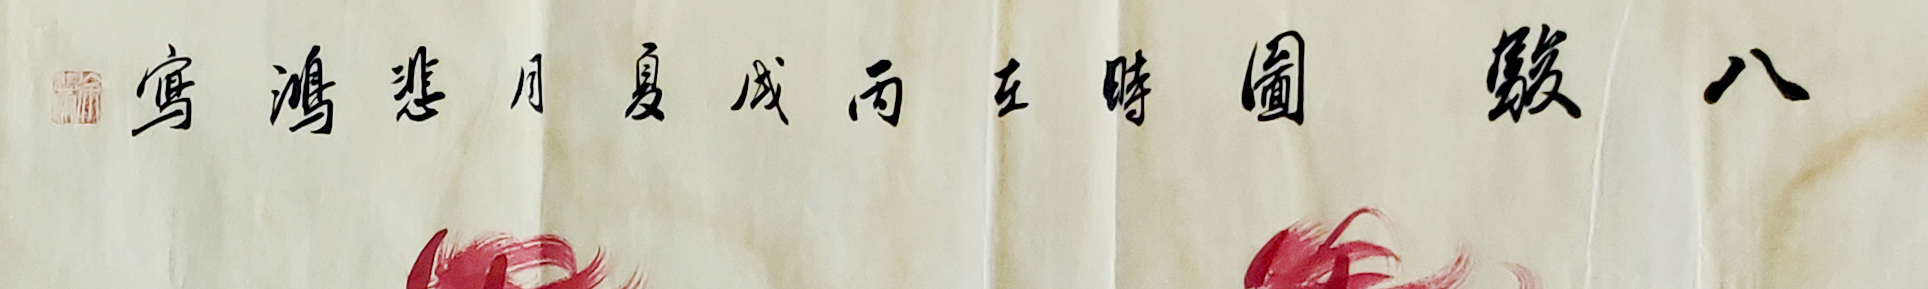 八駿圖時在丙戌夏月悲鴻寫